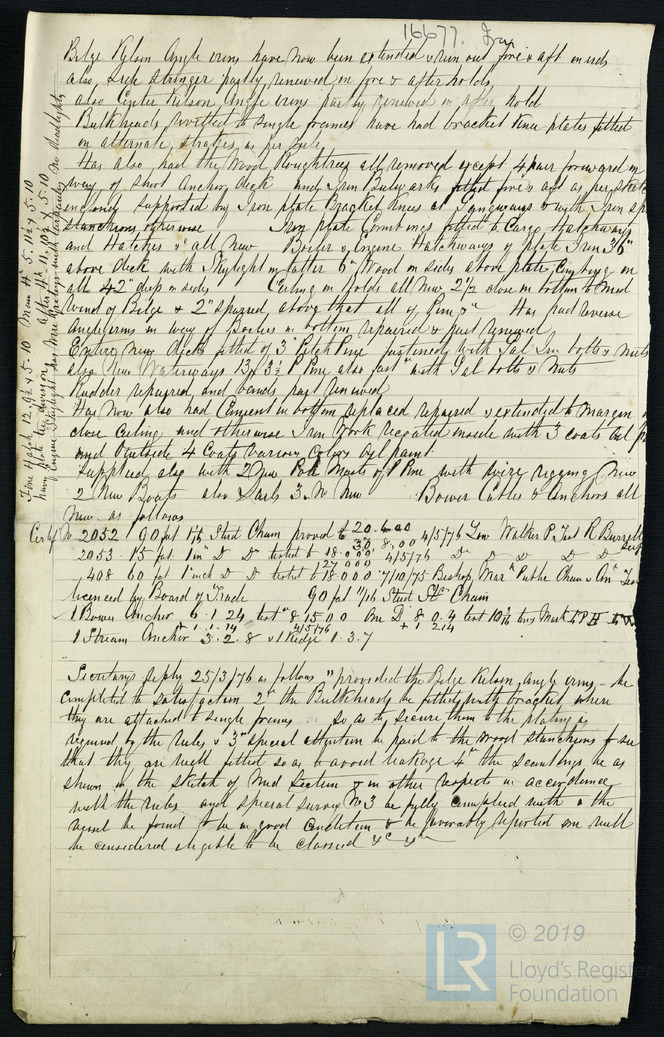 16677. Iron
Bilge Kylson Angle irons have now been extended & run out fore & aft ends
also Side Stringer partly renewed in fore & after holds
also Center Kilson Angle irons partly renewed in after hold
Bulkheads rivetted to single frames have had bracket knee plates fitted
on alternate strakes as per rule
Has also had the Wood Roughtrees all removed except 4 pair forward in
way of short Anchor deck and Iron Bulwarks fitted fore & aft as per
and supported by Iron plate Bracket knees at Gangways & with Iron
stanchions otherwise Iron plate Combings fitted to Cargo Hatchways
and Hatches & all New Boiler & Engine Hatchways of plate Iron 3'6"
above deck with Skylight on latter 6" Wood on sides above plate Combing on
all 42" deep on sides Ceiling in holds all New 2½ close in bottom to
wind of Bilge & 2" sparred above that all of Pine Has had reverse
Angle irons in way of Boilers in bottom repaired & part renewed
Entire New decks fitted of 3" Pitch Pine fastened with Gal Iron bolts & Nuts
also New Waterways 13 x 3½ P Pine also fast with Gal bolts & Nuts
Rudder repaired and bands part renewed
Has Now also had Cement in bottom replaced repaired & extended to Margin
close Ceiling and otherwise Iron Work recoated inside with 3 coats
and outside 4 Coats various Colors oil paint
Supplied also with 2 New Pole Masts of P Pine with wire rigging New
2 New Boats also Sails 3 New Bower Cables & Anchors all
New as follows
Certf No 2052 90 fat 1 1/16 Stud Chain proved to 20.6.00 4/5/76 Low Walker P. R. Burrell
30.8.00
2053 15 fat 1 in D D tested to 18.0.00 4/5/76 D D D D D
27 000
408 60 fat 1 inch D D tested to 18 000 7/10/75 Bishop Wear Public Chain &
licenced by Board of Trade 90 fat 11/16 Street Chain
1 Bower Anchor 6.1.24 test 8 15 00 One D 8.0.4 test 10
+ 1.1.14 4/5/76 + 1 2 14
1 Stream Anchor 3.2.8 & 1 Kedge 1.3.7
Secretarys reply 25/3/76 as follows "provided the Bilge Kelson Angle irons be
completed to satisfaction 2nd the Bulkheads be fitted with brackets where
they are attached to single frames so as to secure them to the plating as
required by the rules & 3rd special attention be paid to the wood stanchions to see
that they are well fitted so as to avoid leakage 4th the scantlings be as
shewn in the sketch of Mid Section & in other respects in accordance
with the rules and special survey No 3 be fully complied with & the
vessel be found to be in good condition & be favorably reported on will
be considered eligible to be classed &c &c
Fore Hatch 12.9½ x 5.10 Main
having plate
Engine Skylight
© 2019
LR
Lloyd's Register
Foundation